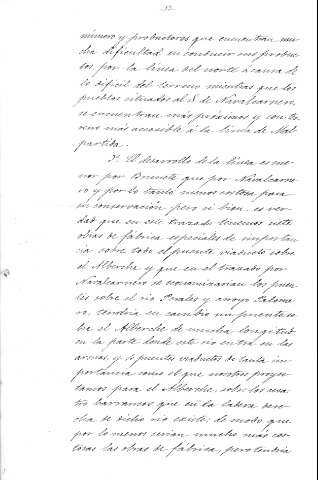 13.
minero y productores que encuentran mu-
cha dificultad en conducir sus produc-
tos por la linea del norte á causa de
lo dificil del terreno mientras que los
pueblos situados al S. de Navalcarnero,
se encuentran mas próximos y con te-
rreno más accesible á la linea de Mal-
partida.
3ª El desarrollo de la linea es me-
nor por Brunete que por Navalcarne-
ro y por lo tanto menos costosa para
su conservación pero si bien es ver-
dad que en este trazado tenemos siete
obras de fábrica especiales de importan-
cia sobre todo el puente viaducto sobre
el Alberche y que en el trazado por
Navalcarnero se economizarian los puen-
tes sobre el rio Perales y arroyo Palome-
ro, tendria en cambio un puente so-
bre el Alberche de mucha longitud
en la parte donde este rio entra en las
arenas, y puentes viaductos de tanta im-
portancia como el que nosotros proyec-
tamos para el Alberche, sobre los cua-
tro barrancos que en la ladera dere-
cha de dicho rio existe; de modo que
por lo menos serian mucho más cos-
tosas las obras de fábrica, pero tendria